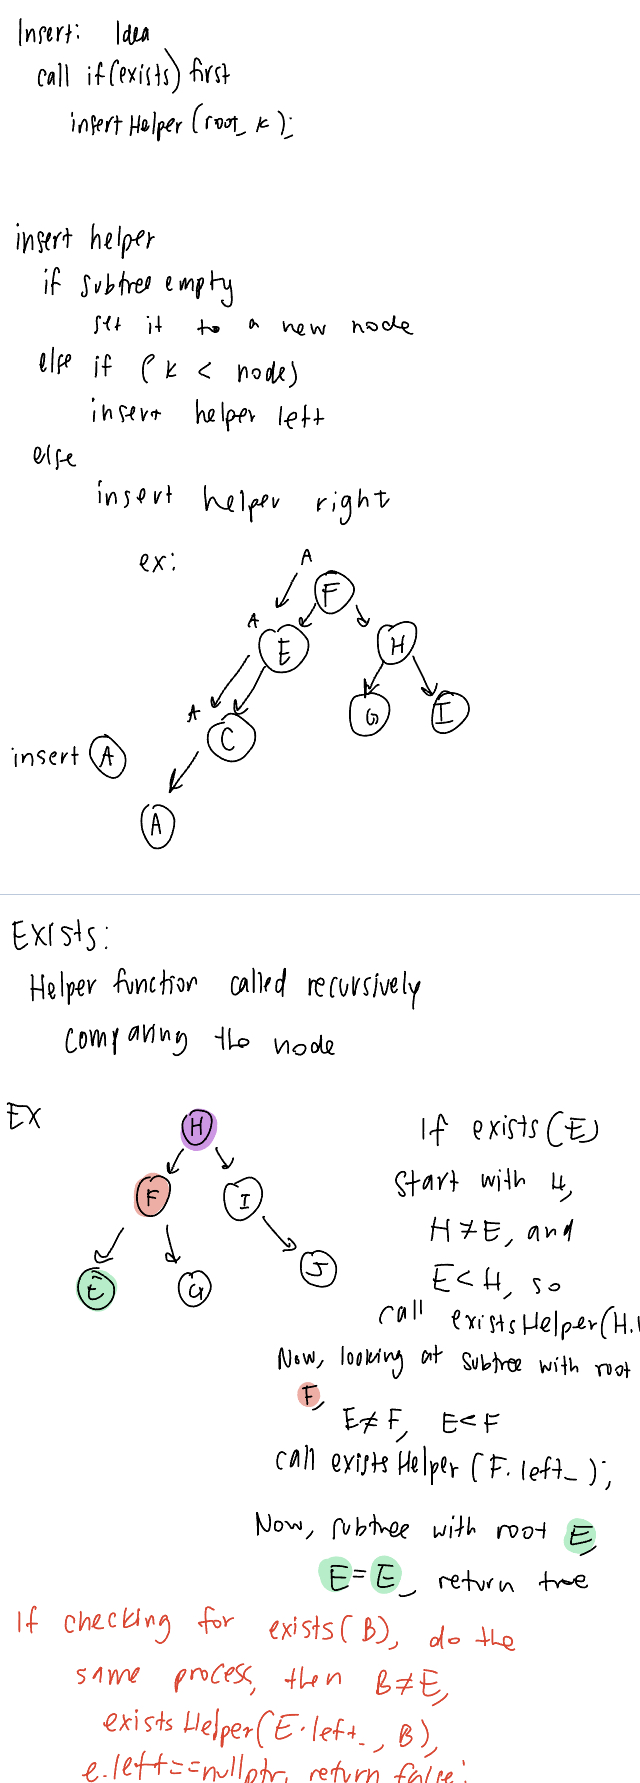 Insert: Idea
call if(exists) first
insertHelper(root_ k);
insert helper
if subtree empty
set it to a new node
else if (k < node)
insert helper left
else
insert helper right
ex:
A
F
A
E
H
A
C
G
I
insert A
A
Exists:
Helper function called recursively
comparing the node
EX
H
F
I
E
G
J
If exists(E)
start with H,
H≠E, and
E<H, so
call existsHelper(H.l
Now, looking at subtree with root
F,
E≠F, E<F
call existsHelper(F.left_);
Now, subtree with root E,
E=E, return true
If checking for exists(B), do the
same process, then B≠E,
existsHelper(E.left_, B),
e.left==nullptr, return false;